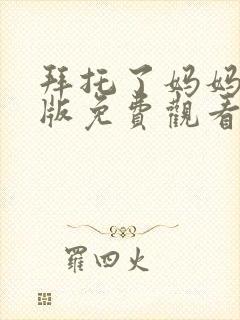 拜托了妈妈
版免費觀看
羅四火